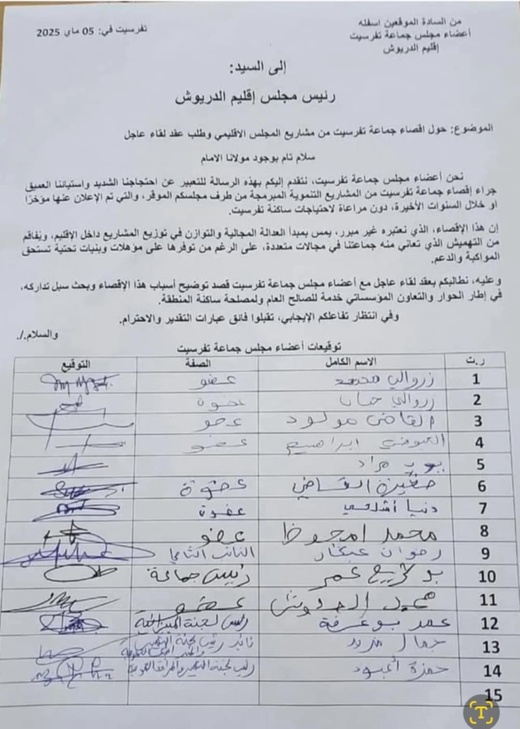 من السادة الموقعين اسفله
أعضاء مجلس جماعة تفرسيت
إقليم الدريوش
تفرسيت في: 05 ماي 2025
إلى السيد:
رئيس مجلس إقليم الدريوش
الموضوع: حول اقصاء جماعة تفرسيت من مشاريع المجلس الاقليمي وطلب عقد لقاء عاجل
سلام تام بوجود مولانا الامام
نحن أعضاء مجلس جماعة تفرسيت، نتقدم إليكم بهذه الرسالة للتعبير عن احتجاجنا الشديد واستيائنا العميق
جراء إقصاء جماعة تفرسيت من المشاريع التنموية المبرمجة من طرف مجلسكم الموقر، والتي تم الإعلان عنها مؤخرًا
او خلال السنوات الأخيرة، دون مراعاة لاحتياجات ساكنة تفرسيت.
إن هذا الإقصاء، الذي نعتبره غير مبرر، يمس بمبدأ العدالة المجالية والتوازن في توزيع المشاريع داخل الإقليم، ويفاقم
من التهميش الذي تعاني منه جماعتنا في مجالات متعددة، على الرغم من توفرها على مؤهلات وبنيات تحتية تستحق
المواكبة والدعم.
وعليه، نطالبكم بعقد لقاء عاجل مع أعضاء مجلس جماعة تفرسيت قصد توضيح أسباب هذا الإقصاء وبحث سبل تداركه،
في إطار الحوار والتعاون المؤسساتي خدمة للصالح العام ولمصلحة ساكنة المنطقة.
وفي انتظار تفاعلكم الإيجابي، تقبلوا فائق عبارات التقدير والاحترام.
والسلام./.
توقيعات أعضاء مجلس جماعة تفرسيت
ر.ت الاسم الكامل الصفة التوقيع
1 زروالي محمد عضو
2 زروالي حنان عضوة
3 القاضي مولود عضو
4 ابراهيم عضو
5 مراد
6 صغيرة القاضي عضوة
7 دنيا عضوة
8 محمد امحوظ عضو
9 رضوان النائب الثاني
10 عمر رئيس جماعة
11 محمد عضو
12 عمر بوغرفة رئيس لجنة الميزانية
13 جمال نائب رئيس لجنة
14 حمزة رئيس لجنة
15